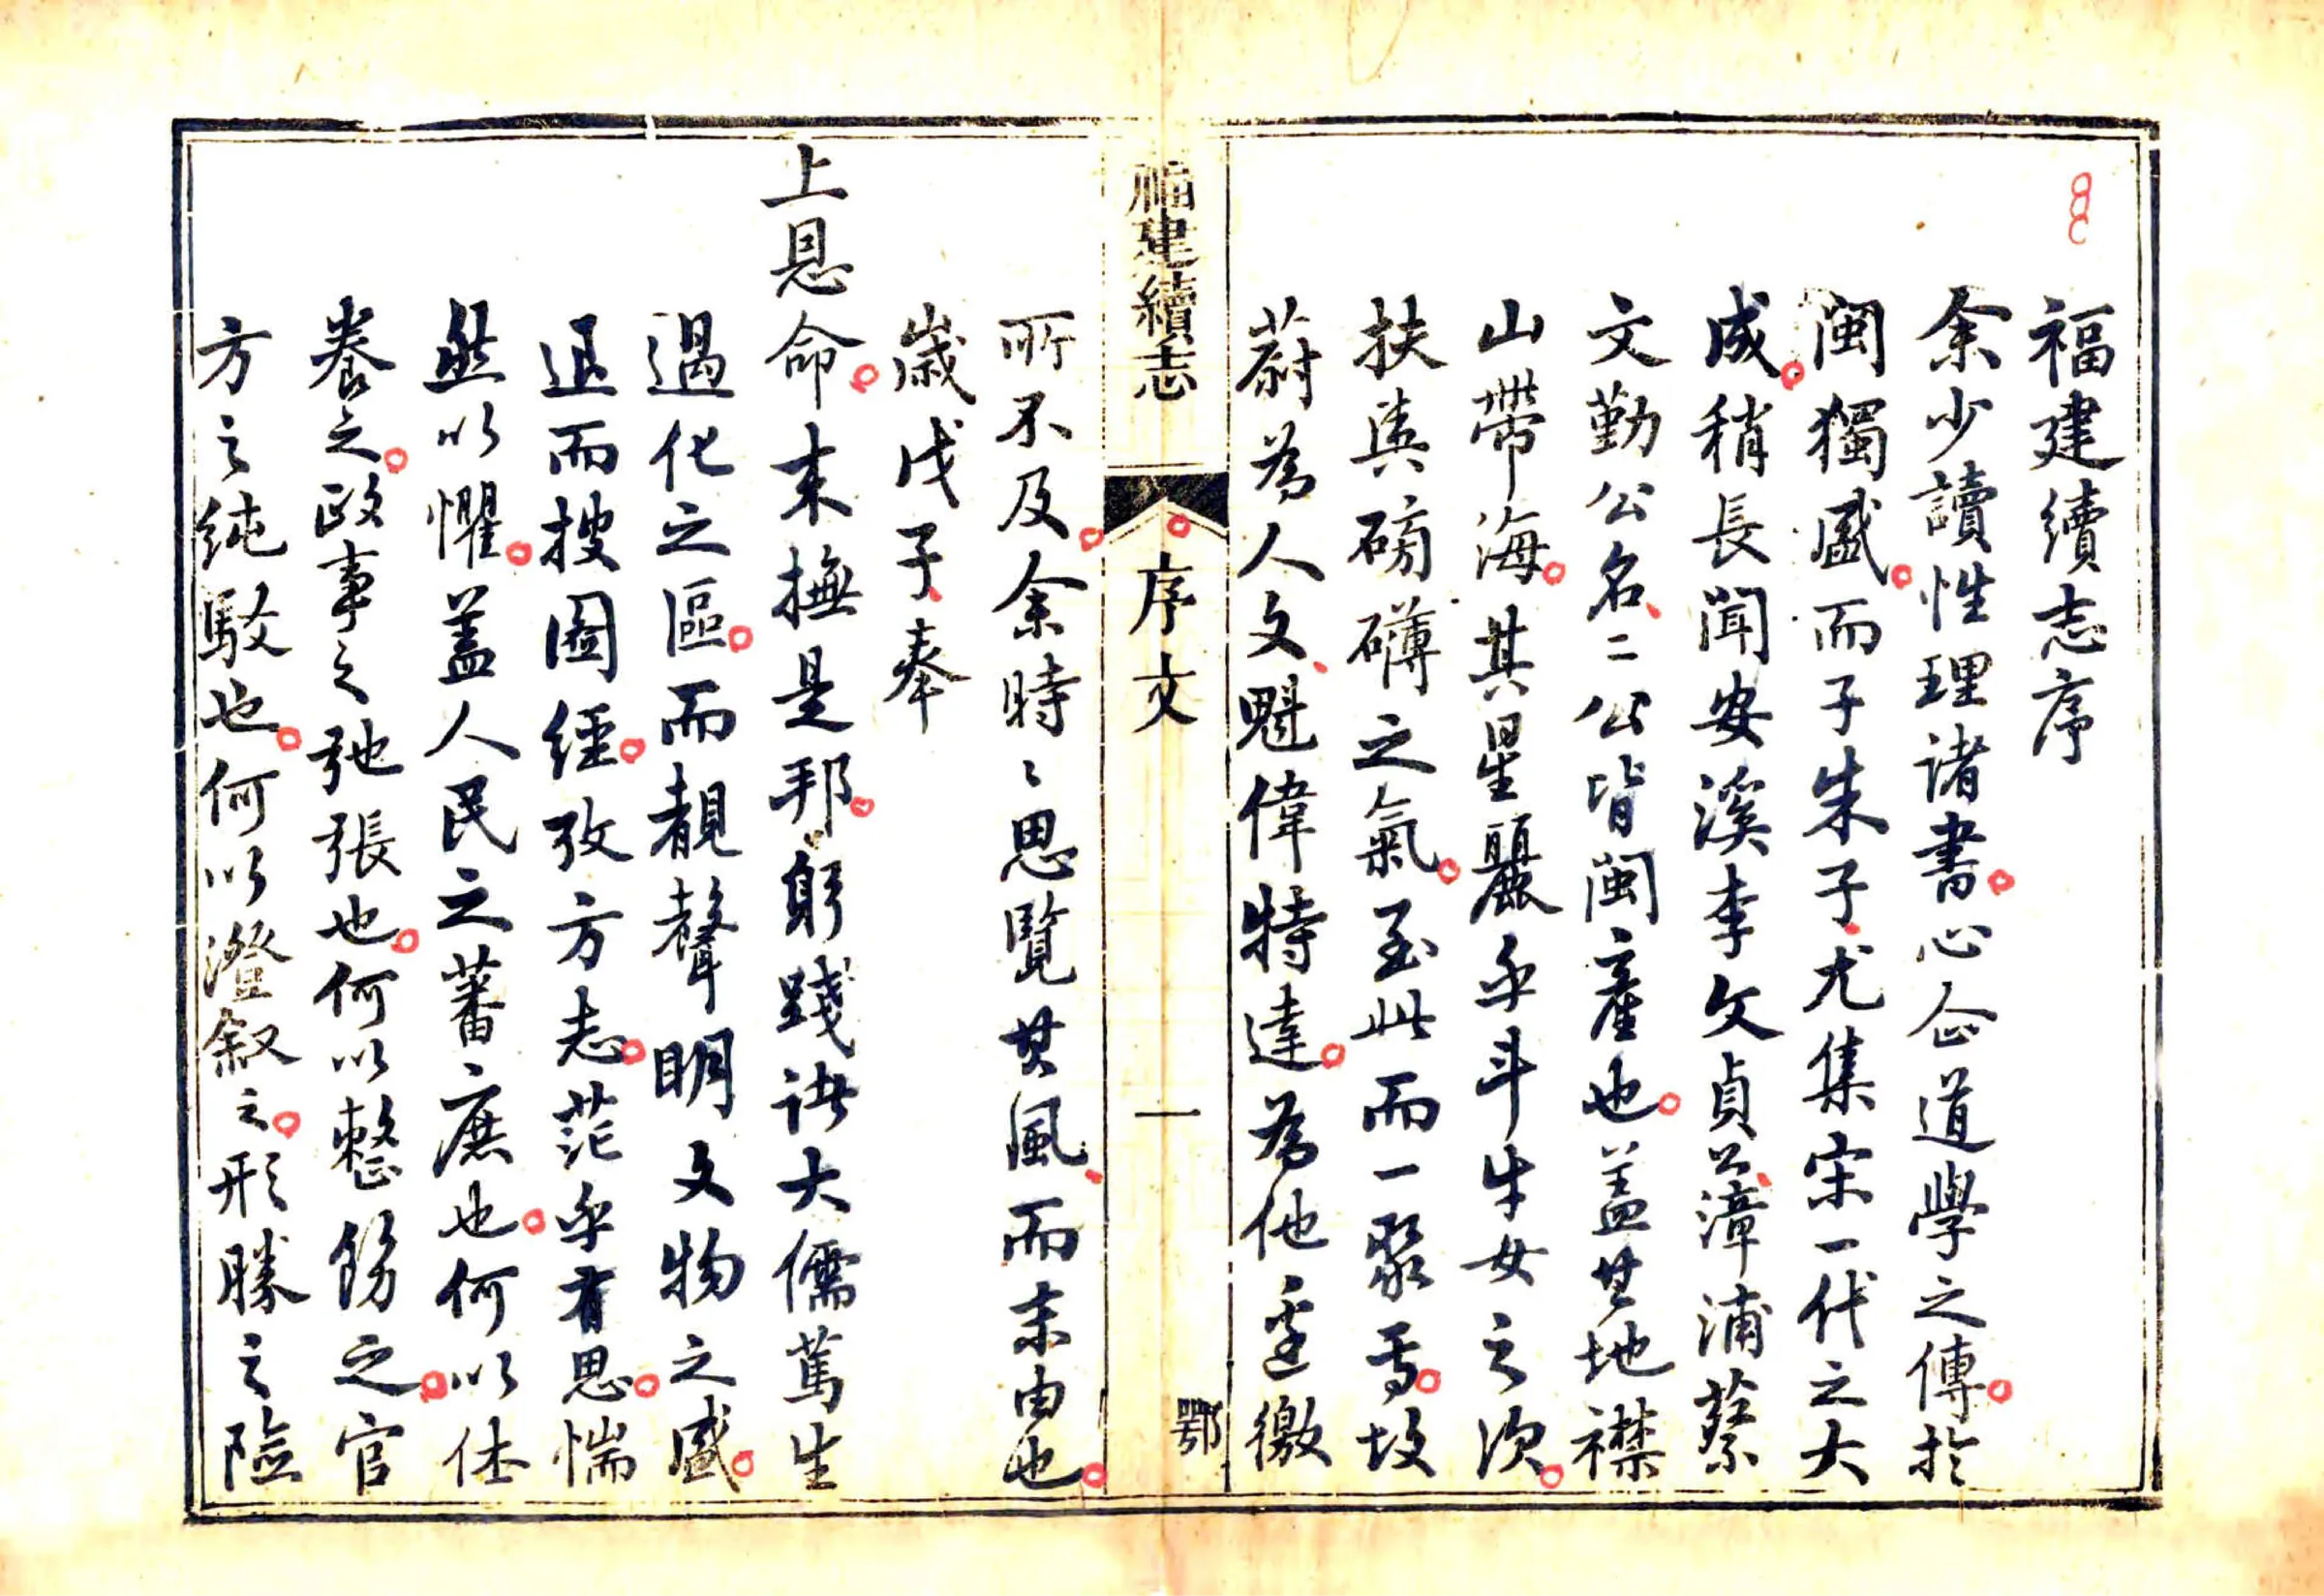 福建續志序
余少讀性理諸書心企道學之傳於
閩獨盛而子朱子尤集宋一代之大
成稍長聞安溪李文貞公漳浦蔡
文勤公名二公皆閩產也蓋其地襟
山帶海其星麗乎斗牛女之次
扶輿磅礴之氣至此而一聚焉故
蔚為人文魁偉特達為他邊徼
福建續志
序文
一
鄂
所不及余時〻思覽其風而未由也
歲戊子奉
上恩命來撫是邦躬踐諸大儒篤生
過化之區而覩聲明文物之盛
退而搜圖經攷方志茫乎有思惴
然以懼蓋人民之蕃庶也何以休
養之政事之弛張也何以整飭之官
方之純駁也何以澄叙之形勝之險